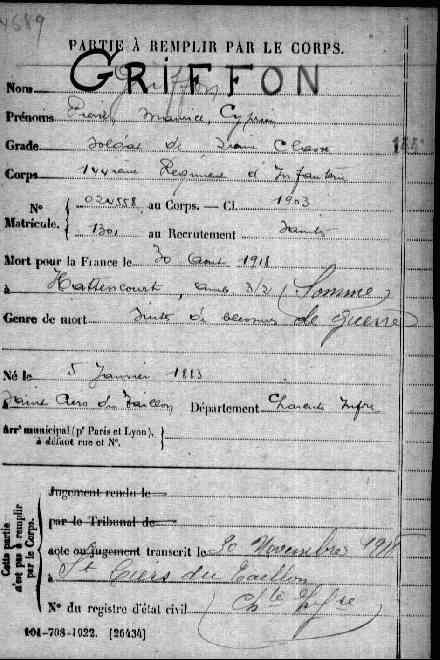 4689
PARTIE À REMPLIR PAR LE CORPS.
GRIFFON
Nom Griffon
Prénoms Pierre, Maurice, Cyprien
Grade Soldat de 2ème Classe
Corps 144ème Régiment d'Infanterie
Nº Matricule. 024558 au Corps. — Cl. 1903
1301 au Recrutement Saintes
Mort pour la France le 30 Août 1918
à Hattencourt, (Somme)
Genre de mort Suite de blessures de guerre
Né le 5 Janvier 1883
à Saint Ciers du Taillon Département Charente Infre
Arr' municipal (p' Paris et Lyon), à défaut rue et Nº.
Cette partie n'est pas à remplir par le Corps.
Jugement rendu le
par le Tribunal de
acte ou jugement transcrit le 30 Novembre 1918
à St Ciers du Taillon
Nº du registre d'état civil (Chte Infre)
101-708-1922. [26434]